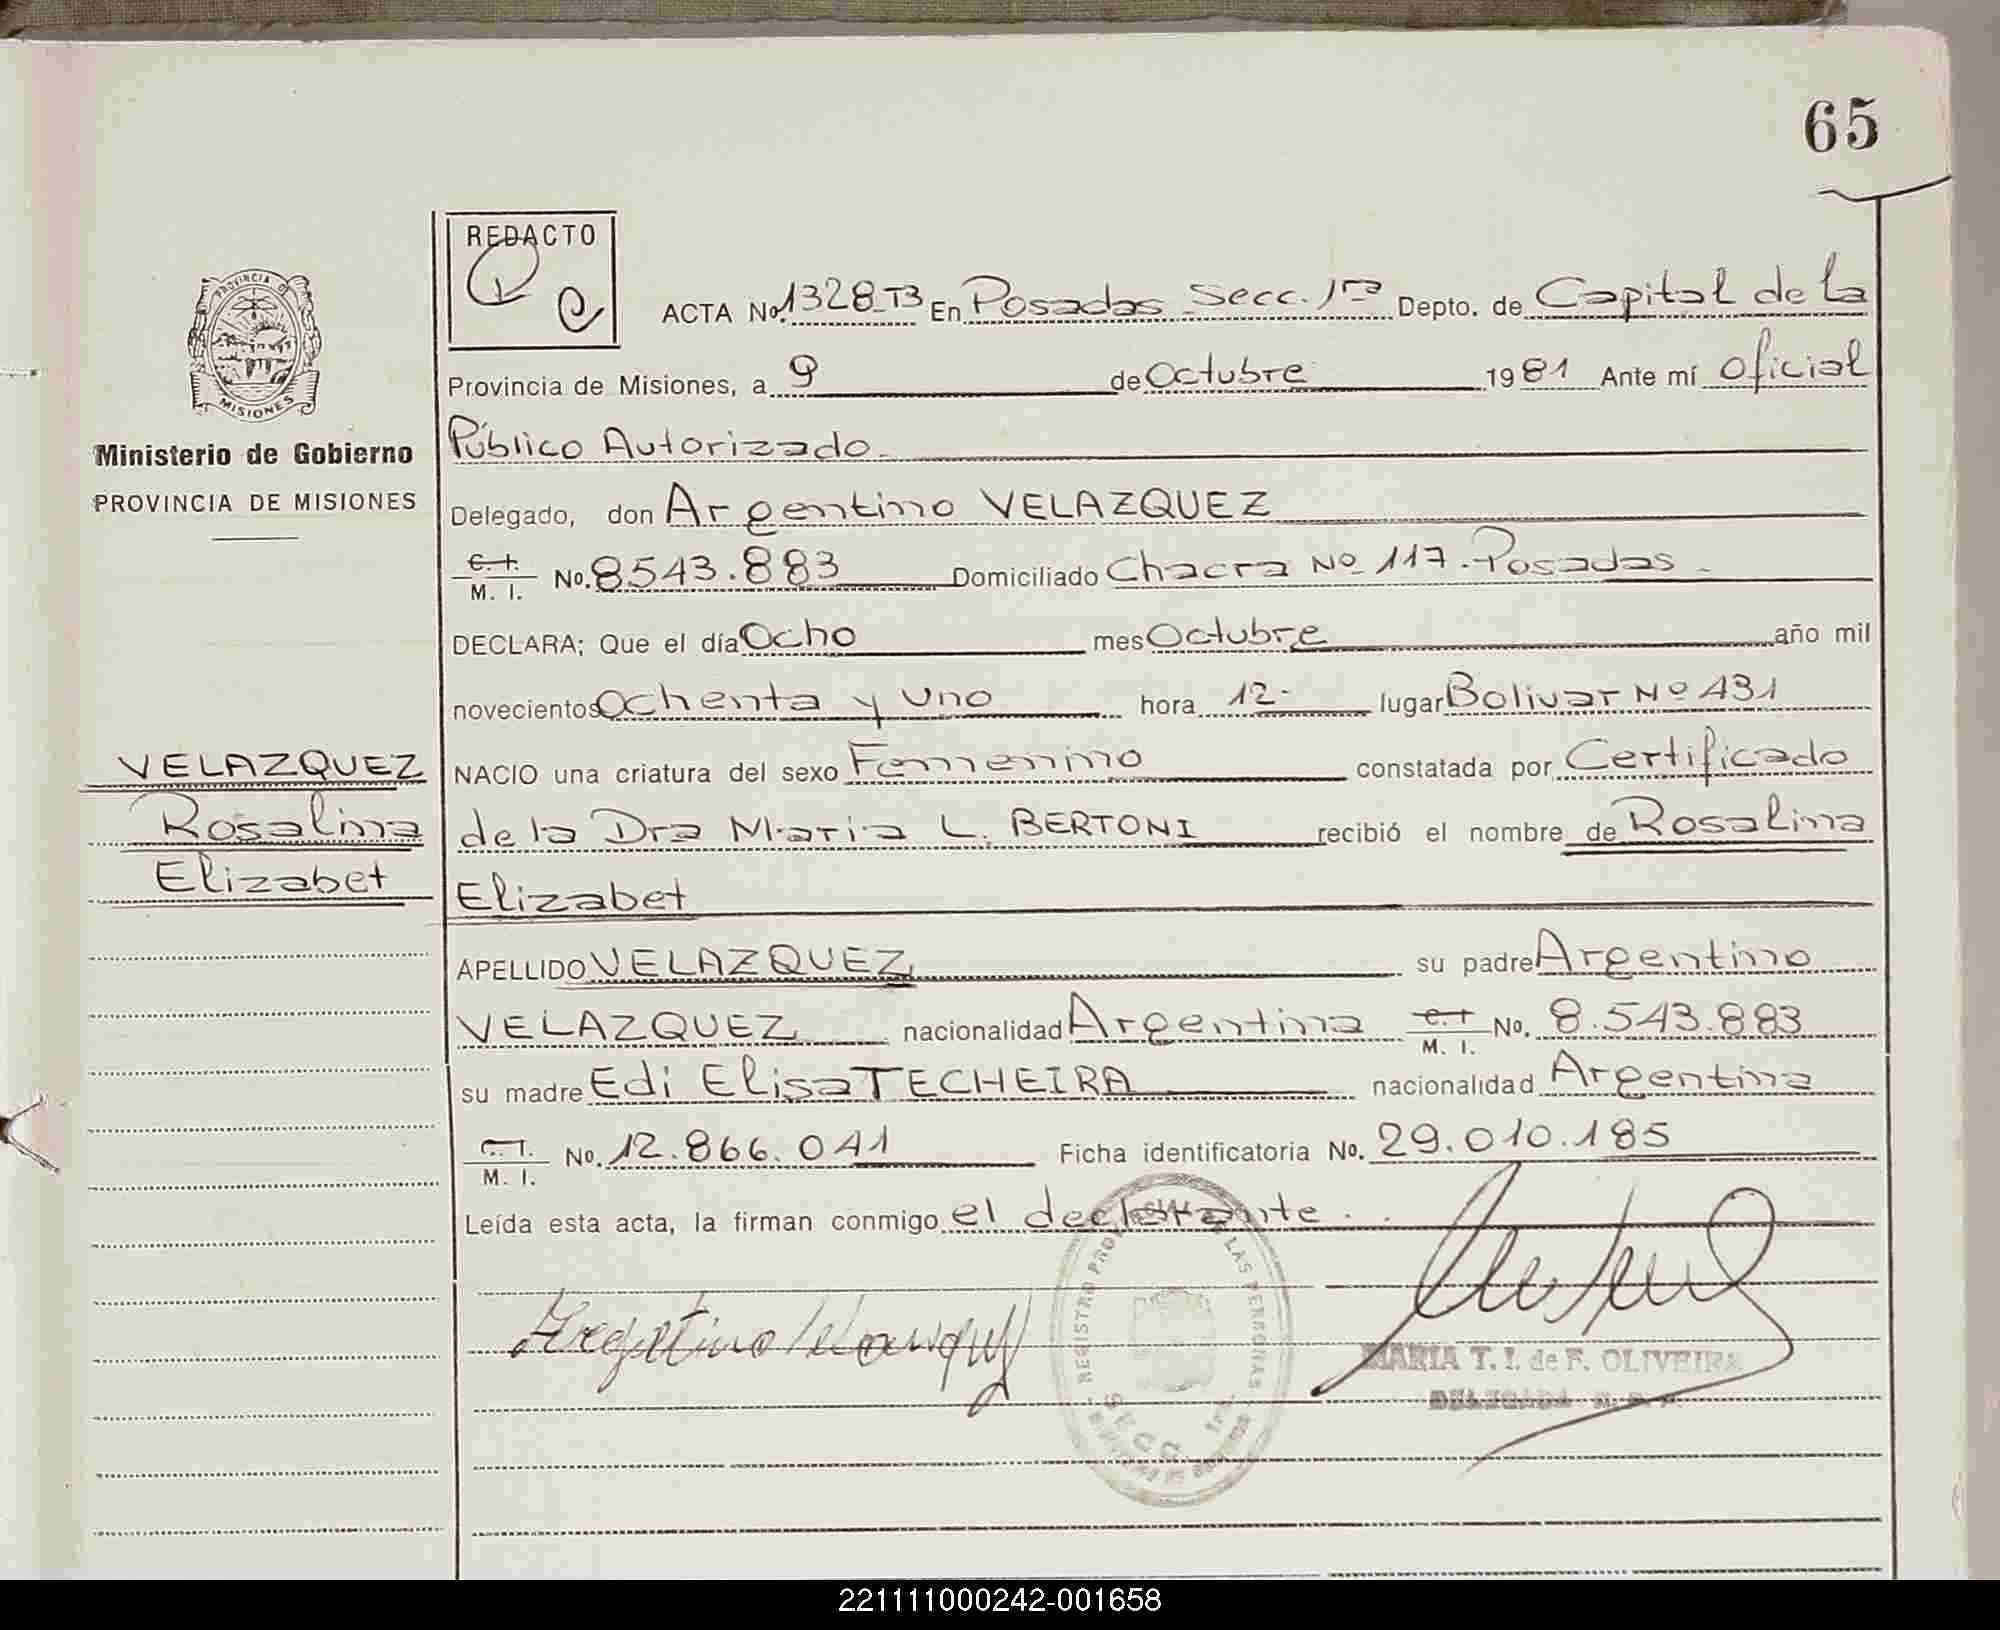 65
REDACTO
PROVINCIA D
MISIONES
ACTA No. 1328-T3 En Posadas Secc. 1ra Depto. de Capital de la
Provincia de Misiones, a 9 de Octubre 1981 Ante mí Oficial
Público Autorizado.
Ministerio de Gobierno
PROVINCIA DE MISIONES
Delegado, don Argentino VELAZQUEZ
C. I. M. I. No. 8543.883 Domiciliado Chacra Nº 117. Posadas.
DECLARA; Que el día Ocho mes Octubre año mil
novecientos Ochenta y uno hora 12- lugar Bolivar Nº 431
VELAZQUEZ
Rosalina
Elizabet
NACIO una criatura del sexo Femenino constatada por Certificado
de la Dra Maria L. BERTONI recibió el nombre de Rosalina
Elizabet
APELLIDO VELAZQUEZ su padre Argentino
VELAZQUEZ nacionalidad Argentina C. I. M. I. No. 8.543.883
su madre Edi Elisa TECHEIRA nacionalidad Argentina
C. I. M. I. No. 12.866.041 Ficha identificatoria No. 29.010.185
Leída esta acta, la firman conmigo el declarante.
Argentino Velazquez
REGISTRO PROV DE LAS PERSONAS
SECC. 1ra.
MARIA T. I. de F. OLIVEIRA
DELEGADA
221111000242-001658